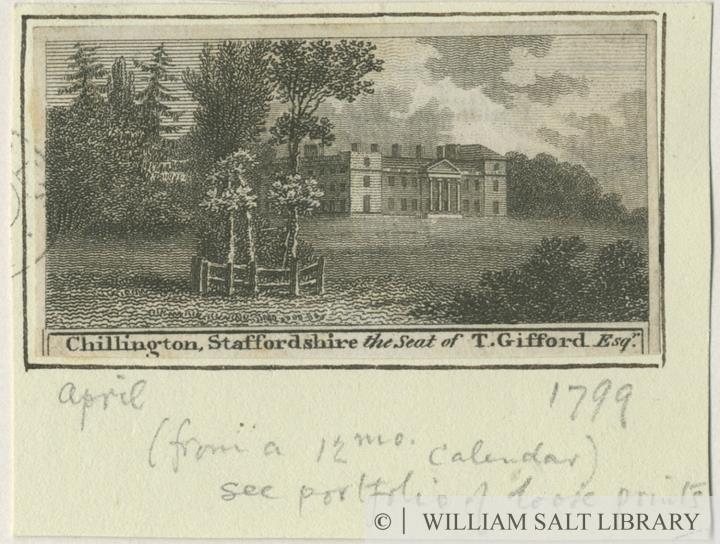 Chillington, Staffordshire the Seat of T. Gifford Esqr.
April 1799
(from a 12mo. Calendar)
see portfolio of loose prints
© | WILLIAM SALT LIBRARY